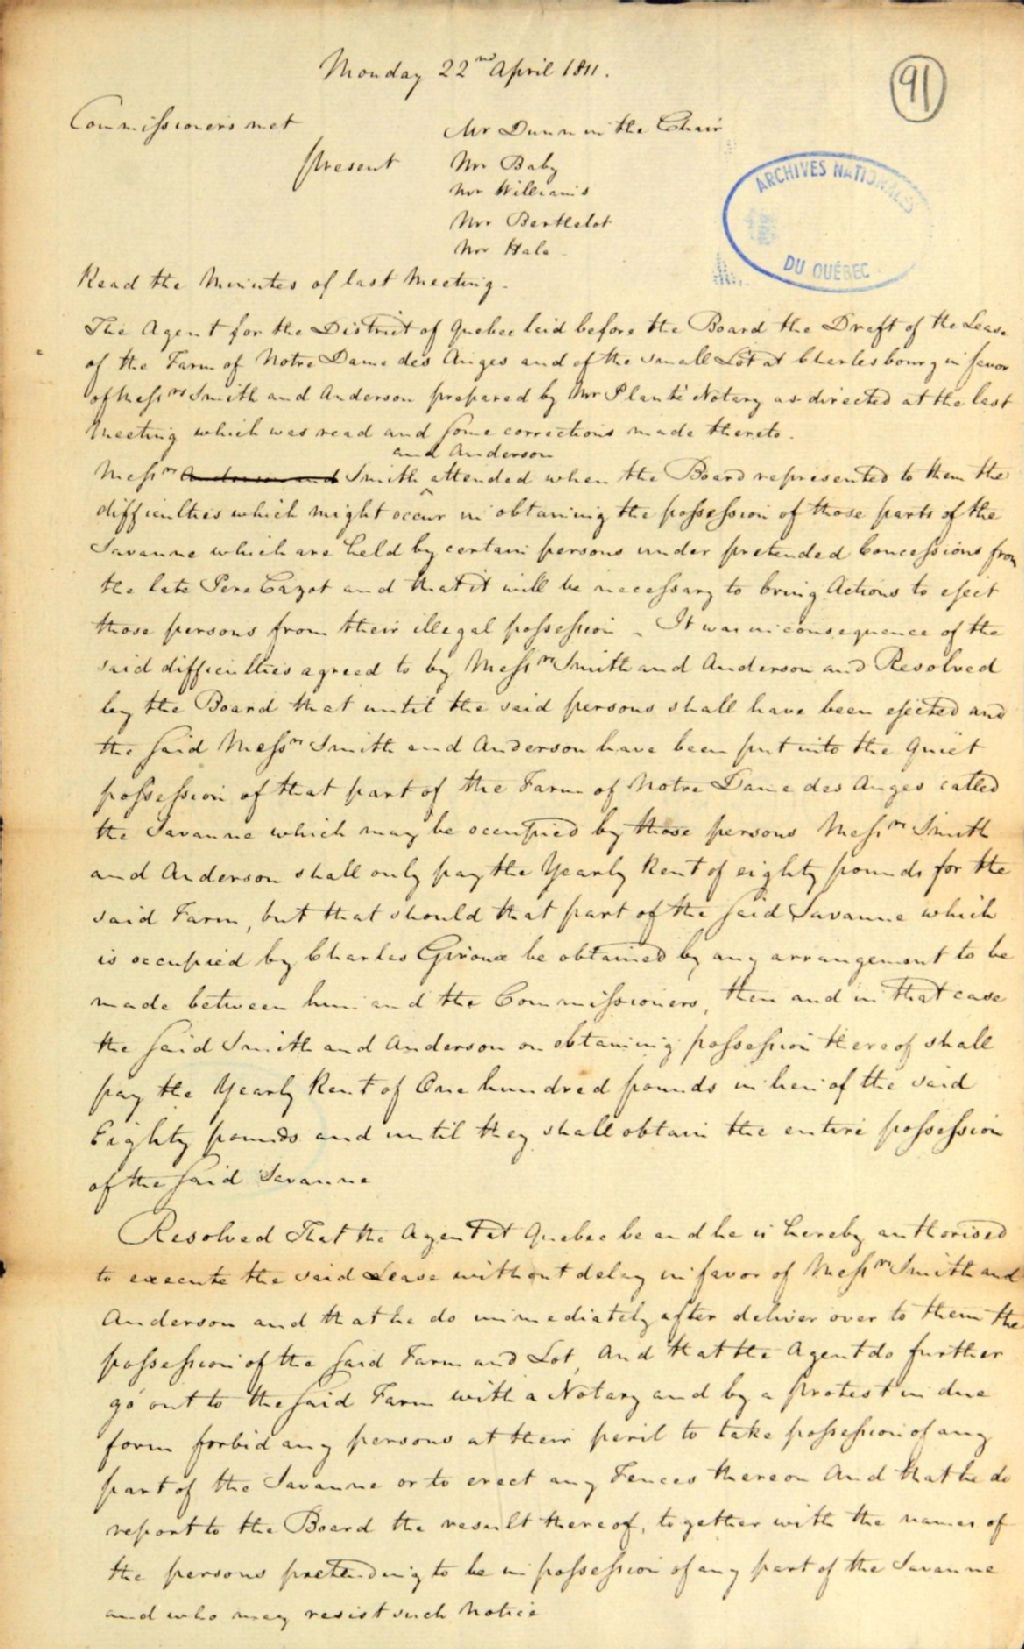 Monday 22nd April 1811.
91
Commissioners met
Mr Dunn in the Chair
present
Mr Baby
Mr Williams
Mr Berthelot
Mr Hale
ARCHIVES NATIONALES
DU QUÉBEC
Read the Minutes of last Meeting.
The Agent for the District of Quebec laid before the Board the Draft of the Lease
of the Farm of Notre Dame des Anges and of the small Lot at Charlesbourg in favor
of Messrs Smith and Anderson prepared by Mr Planté Notary as directed at the last
Meeting which was read and some corrections made thereto.
and Anderson
Messrs Anderson and Smith attended when the Board represented to them the
difficulties which might occur in obtaining the possession of those parts of the
Savanne which are held by certain persons under pretended Concessions from
the late Pere Cazot and that it will be necessary to bring Actions to eject
those persons from their illegal possession - It was in consequence of the
said difficulties agreed to by Messrs Smith and Anderson and Resolved
by the Board that until the said persons shall have been ejected and
the said Messrs Smith and Anderson have been put into the quiet
possession of that part of the Farm of Notre Dame des Anges called
the Savanne which may be occupied by those persons Messrs Smith
and Anderson shall only pay the Yearly Rent of eighty pounds for the
said Farm, but that should that part of the said Savanne which
is occupied by Charles Giroux be obtained by any arrangement to be
made between him and the Commissioners, then and in that case
the said Smith and Anderson on obtaining possession thereof shall
pay the Yearly Rent of One hundred pounds in lieu of the said
Eighty pounds and until they shall obtain the entire possession
of the said Savanne
Resolved That the Agent at Quebec be and he is hereby authorised
to execute the said Lease without delay in favor of Messrs Smith and
Anderson and that he do immediately after deliver over to them the
possession of the said Farm and Lot, And that the Agent do further
go out to the said Farm with a Notary and by a protest in due
form forbid any persons at their peril to take possession of any
part of the Savanne or to erect any Fences thereon And that he do
report to the Board the result thereof, together with the names of
the persons pretending to be in possession of any part of the Savanne
and who may resist such Notice